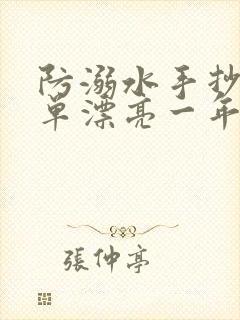 防溺水手抄
单漂亮一年
張仲亭